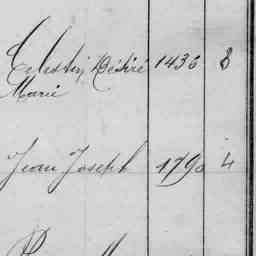 Célestin Désiré 1436 8
Marie
Jean Joseph 1790 4